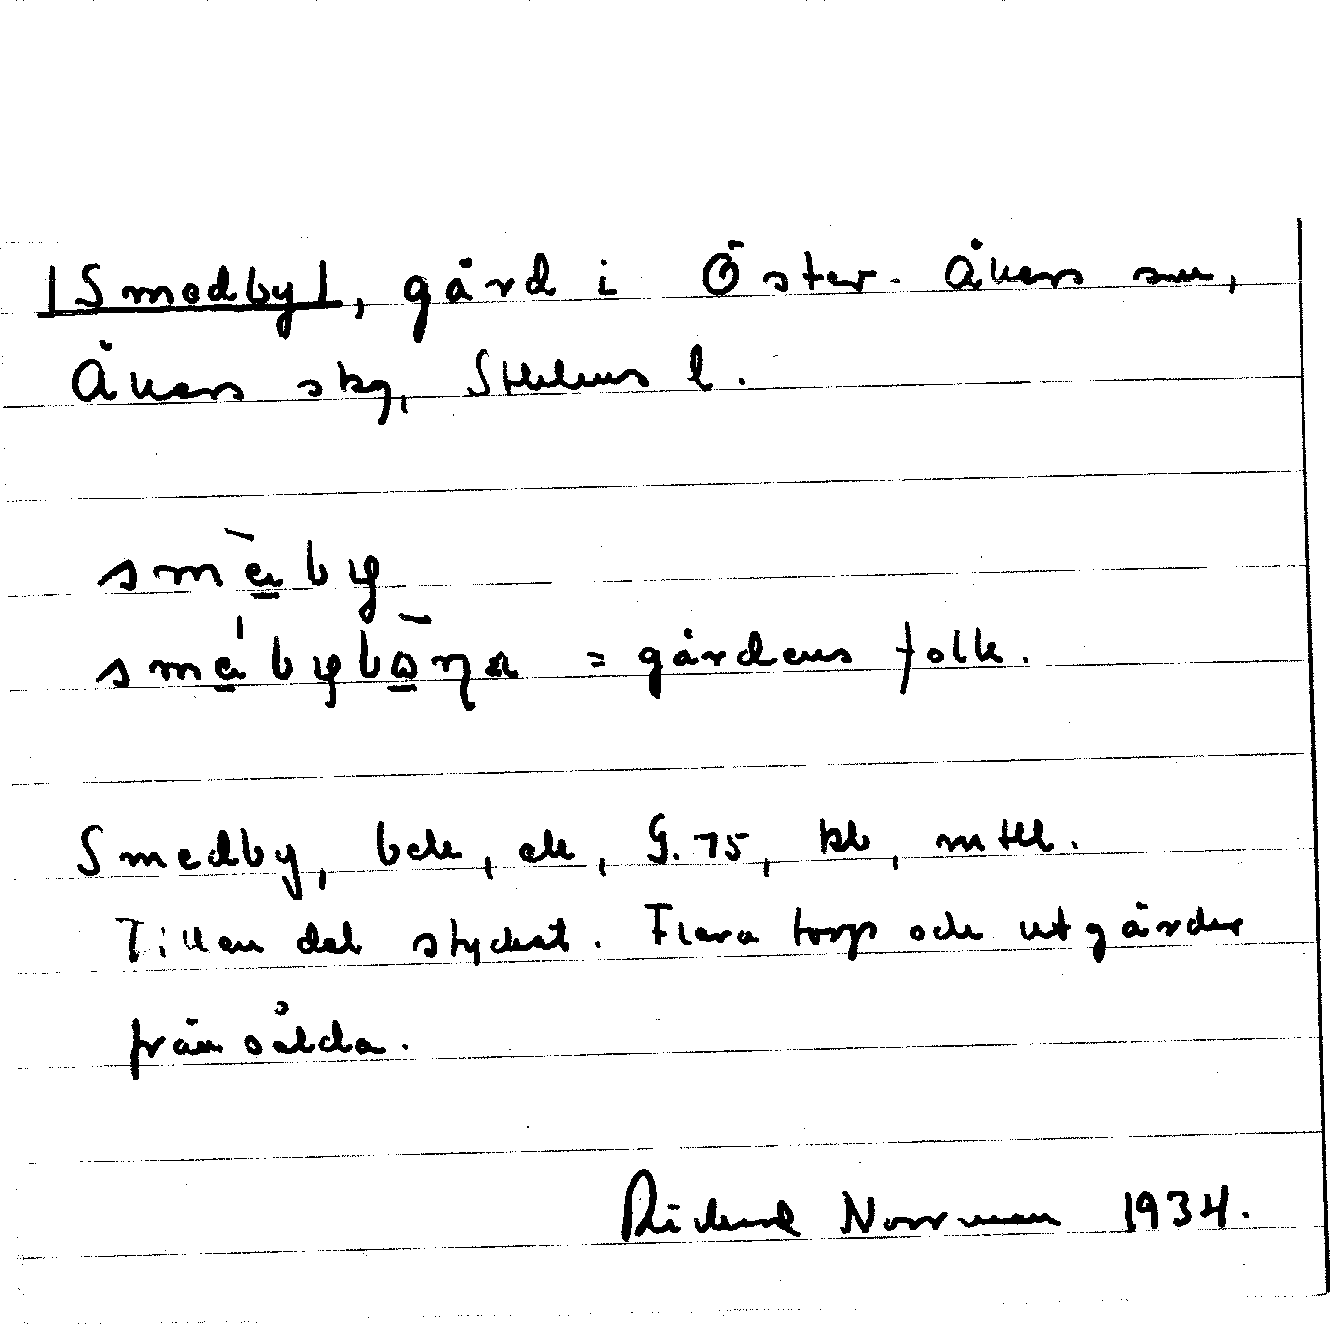 |Smedby|, gård i Öster-Åkers sn,
Åkers skg, Sthlms l.
smèby
smébybònα = gårdens folk.
Smedby, bdk, ek, G. 75, kb, mtll.
Till en del styckat. Flera torp och utgårdar
från sålda.
Rickard Norrman 1934.